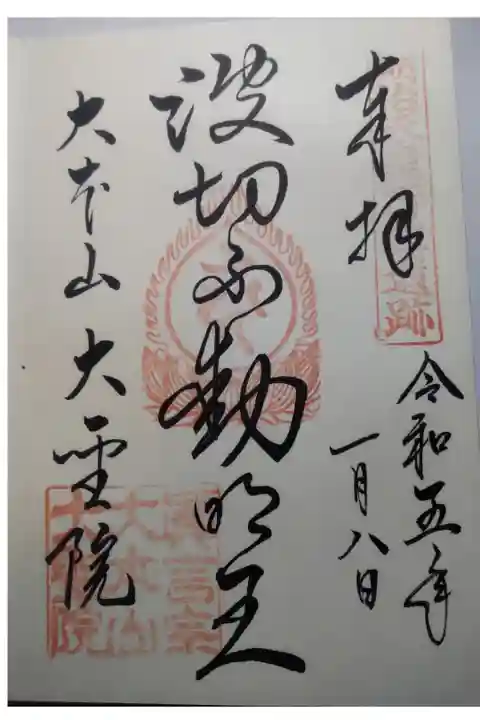 奉拝
令和五年
一月八日
波切不動明王
大本山大聖院
真言宗
大本山
大聖院